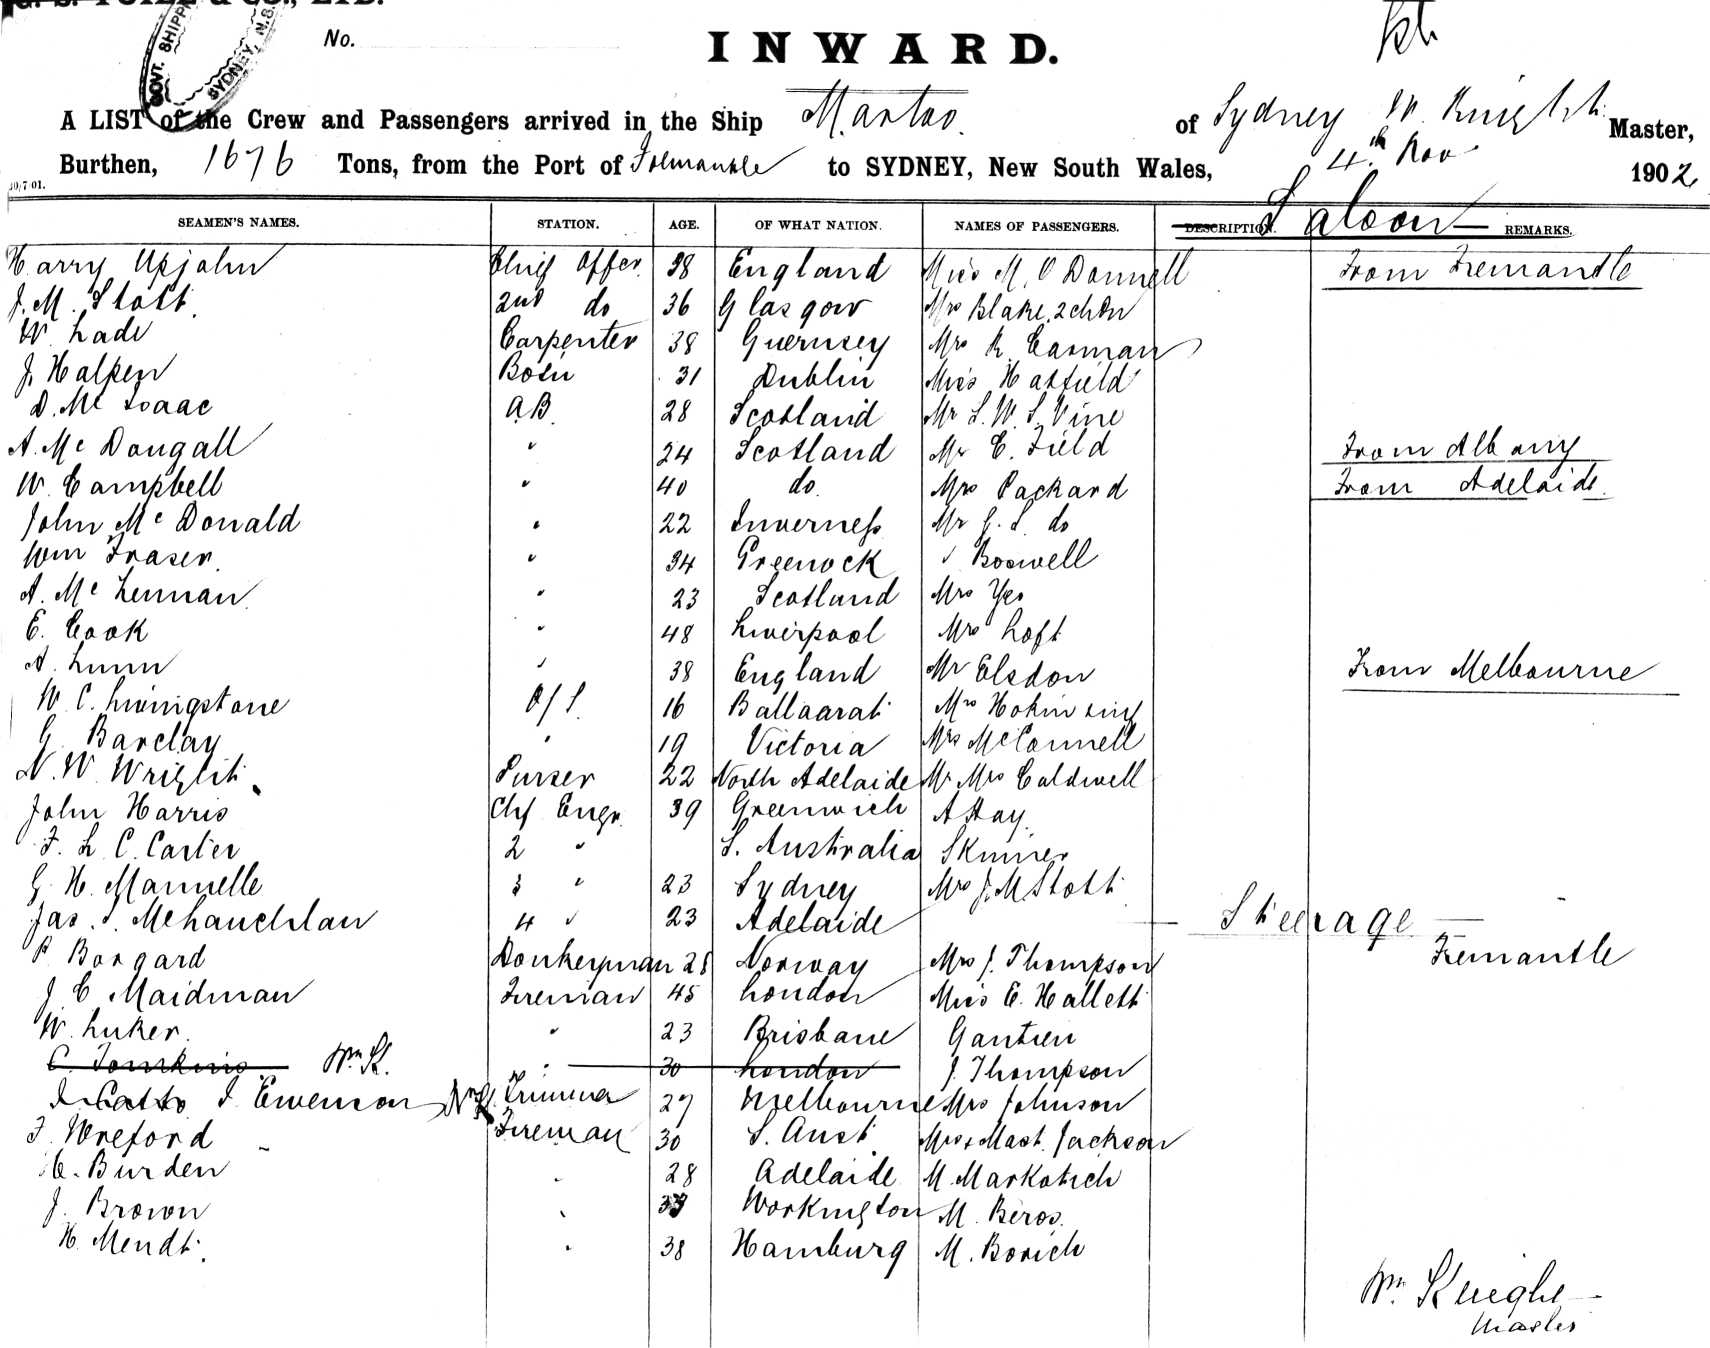 & CO., LTD.
GOVT. SHIPPI
SYDNEY, N.S.
No.
INWARD.
A LIST of the Crew and Passengers arrived in the Ship of Sydney W. Knight Master,
Burthen, 1676 Tons, from the Port of to SYDNEY, New South Wales, 4th Nov 1902
10/7/01.
SEAMEN'S NAMES. STATION. AGE. OF WHAT NATION. NAMES OF PASSENGERS. DESCRIPTION. Saloon REMARKS.
Harry Upjohn Chief Offer 38 England Miss M. O Donnell From Fremantle
J. M. Stott 2nd do 36 Glasgow Mrs Blake, 2 chdn
W. Lade Carpenter 38 Guernsey Mrs R. Casman
J. Halpen Bosn 31 Dublin Miss Hatfield
D. Mc Isaac A.B. 28 Scotland Mr S. W. S. Vine
A. Mc Dougall " 24 Scotland Mr C. Field From Albany
W. Campbell " 40 do. Mrs Packard From Adelaide.
John Mc Donald " 22 Inverness Mr G. S. do
Wm Fraser. " 34 Greenock " Boswell
A. Mc Lennan " 23 Scotland Mrs Yeo
E. Cook " 48 Liverpool Mrs Loft
A. Lunn " 38 England Mr Elsdon From Melbourne
W. C. Livingstone O/S. 16 Ballaarat Mrs
G. Barclay " 19 Victoria Mrs McConnell
N. W. Wright Purser 22 North Adelaide Mr Mrs Caldwell
John Harris Chf Engr. 39 Greenwich A Hay.
F. L. C. Carter 2 " S. Australia Skinner
G. H. Mannelle 3 " 23 Sydney Mrs J. M Stott
Jas. S. McLauchlan 4 " 23 Adelaide Steerage
P. Bongard Donkeyman 28 Norway Mrs J. Thompson Fremantle
J. C. Maidman Fireman 45 London Miss E. Hallett
W. Luker. " 23 Brisbane Gantien
C. Tomkins Wm K. " 30 London J. Thompson
J. Ewenson Trimmer 27 Melbourne Mrs Johnson
F. Wreford Fireman 30 S. Aust Mrs & Mast. Jackson
H. Burden " 28 Adelaide M. Markotich
J. Brown " Workington M. Beros.
H. Mendt. " 38 Hamburg M. Borich
Wm Knight
Master